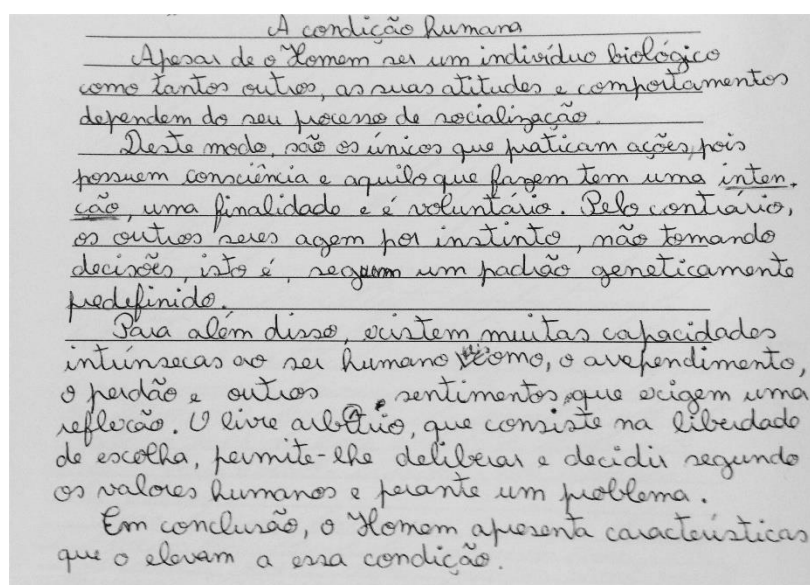 A condição humana
Apesar de o Homem ser um indivíduo biológico
como tantos outros, as suas atitudes e comportamentos
dependem do seu processo de socialização.
Deste modo, são os únicos que praticam ações, pois
possuem consciência e aquilo que fazem tem uma inten-
ção, uma finalidade e é voluntário. Pelo contrário,
os outros seres agem por instinto, não tomando
decisões, isto é, seguem um padrão geneticamente
predefinido.
Para além disso, existem muitas capacidades
intrínsecas ao ser humano como, o arependimento,
o perdão e outros sentimentos que exigem uma
reflexão. O livre arbítrio, que consiste na liberdade
de escolha, permite-lhe deliberar e decidir segundo
os valores humanos e perante um problema.
Em conclusão, o Homem apresenta características
que o elevam a essa condição.